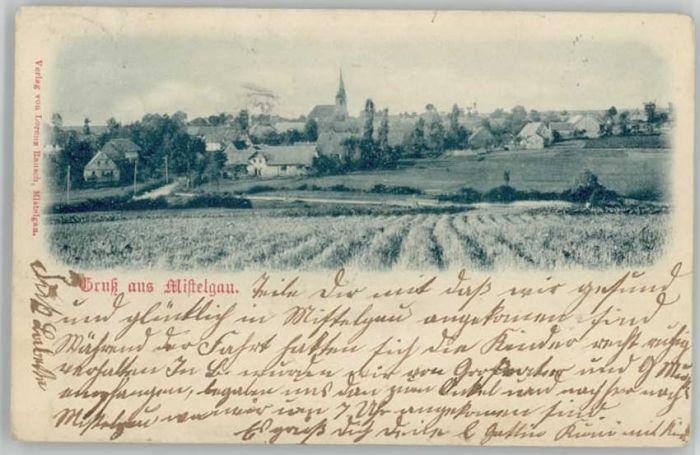 Verlag von Lorenz Rausch, Mistelgau.
Gruß aus Mistelgau. Teile Dir mit daß wir gesund
und glücklich in Mistelgau angekommen sind
Während der Fahrt hatten sich die Kinder recht ruhig
verhalten In B. wurden wir von Großvater und
empfangen, begaben uns dan zum Onkel und nachher nach
Mistelgau wo wir um 7 Uhr angekommen sind
Es grüß Dich Deine l Gattin Kuni mit